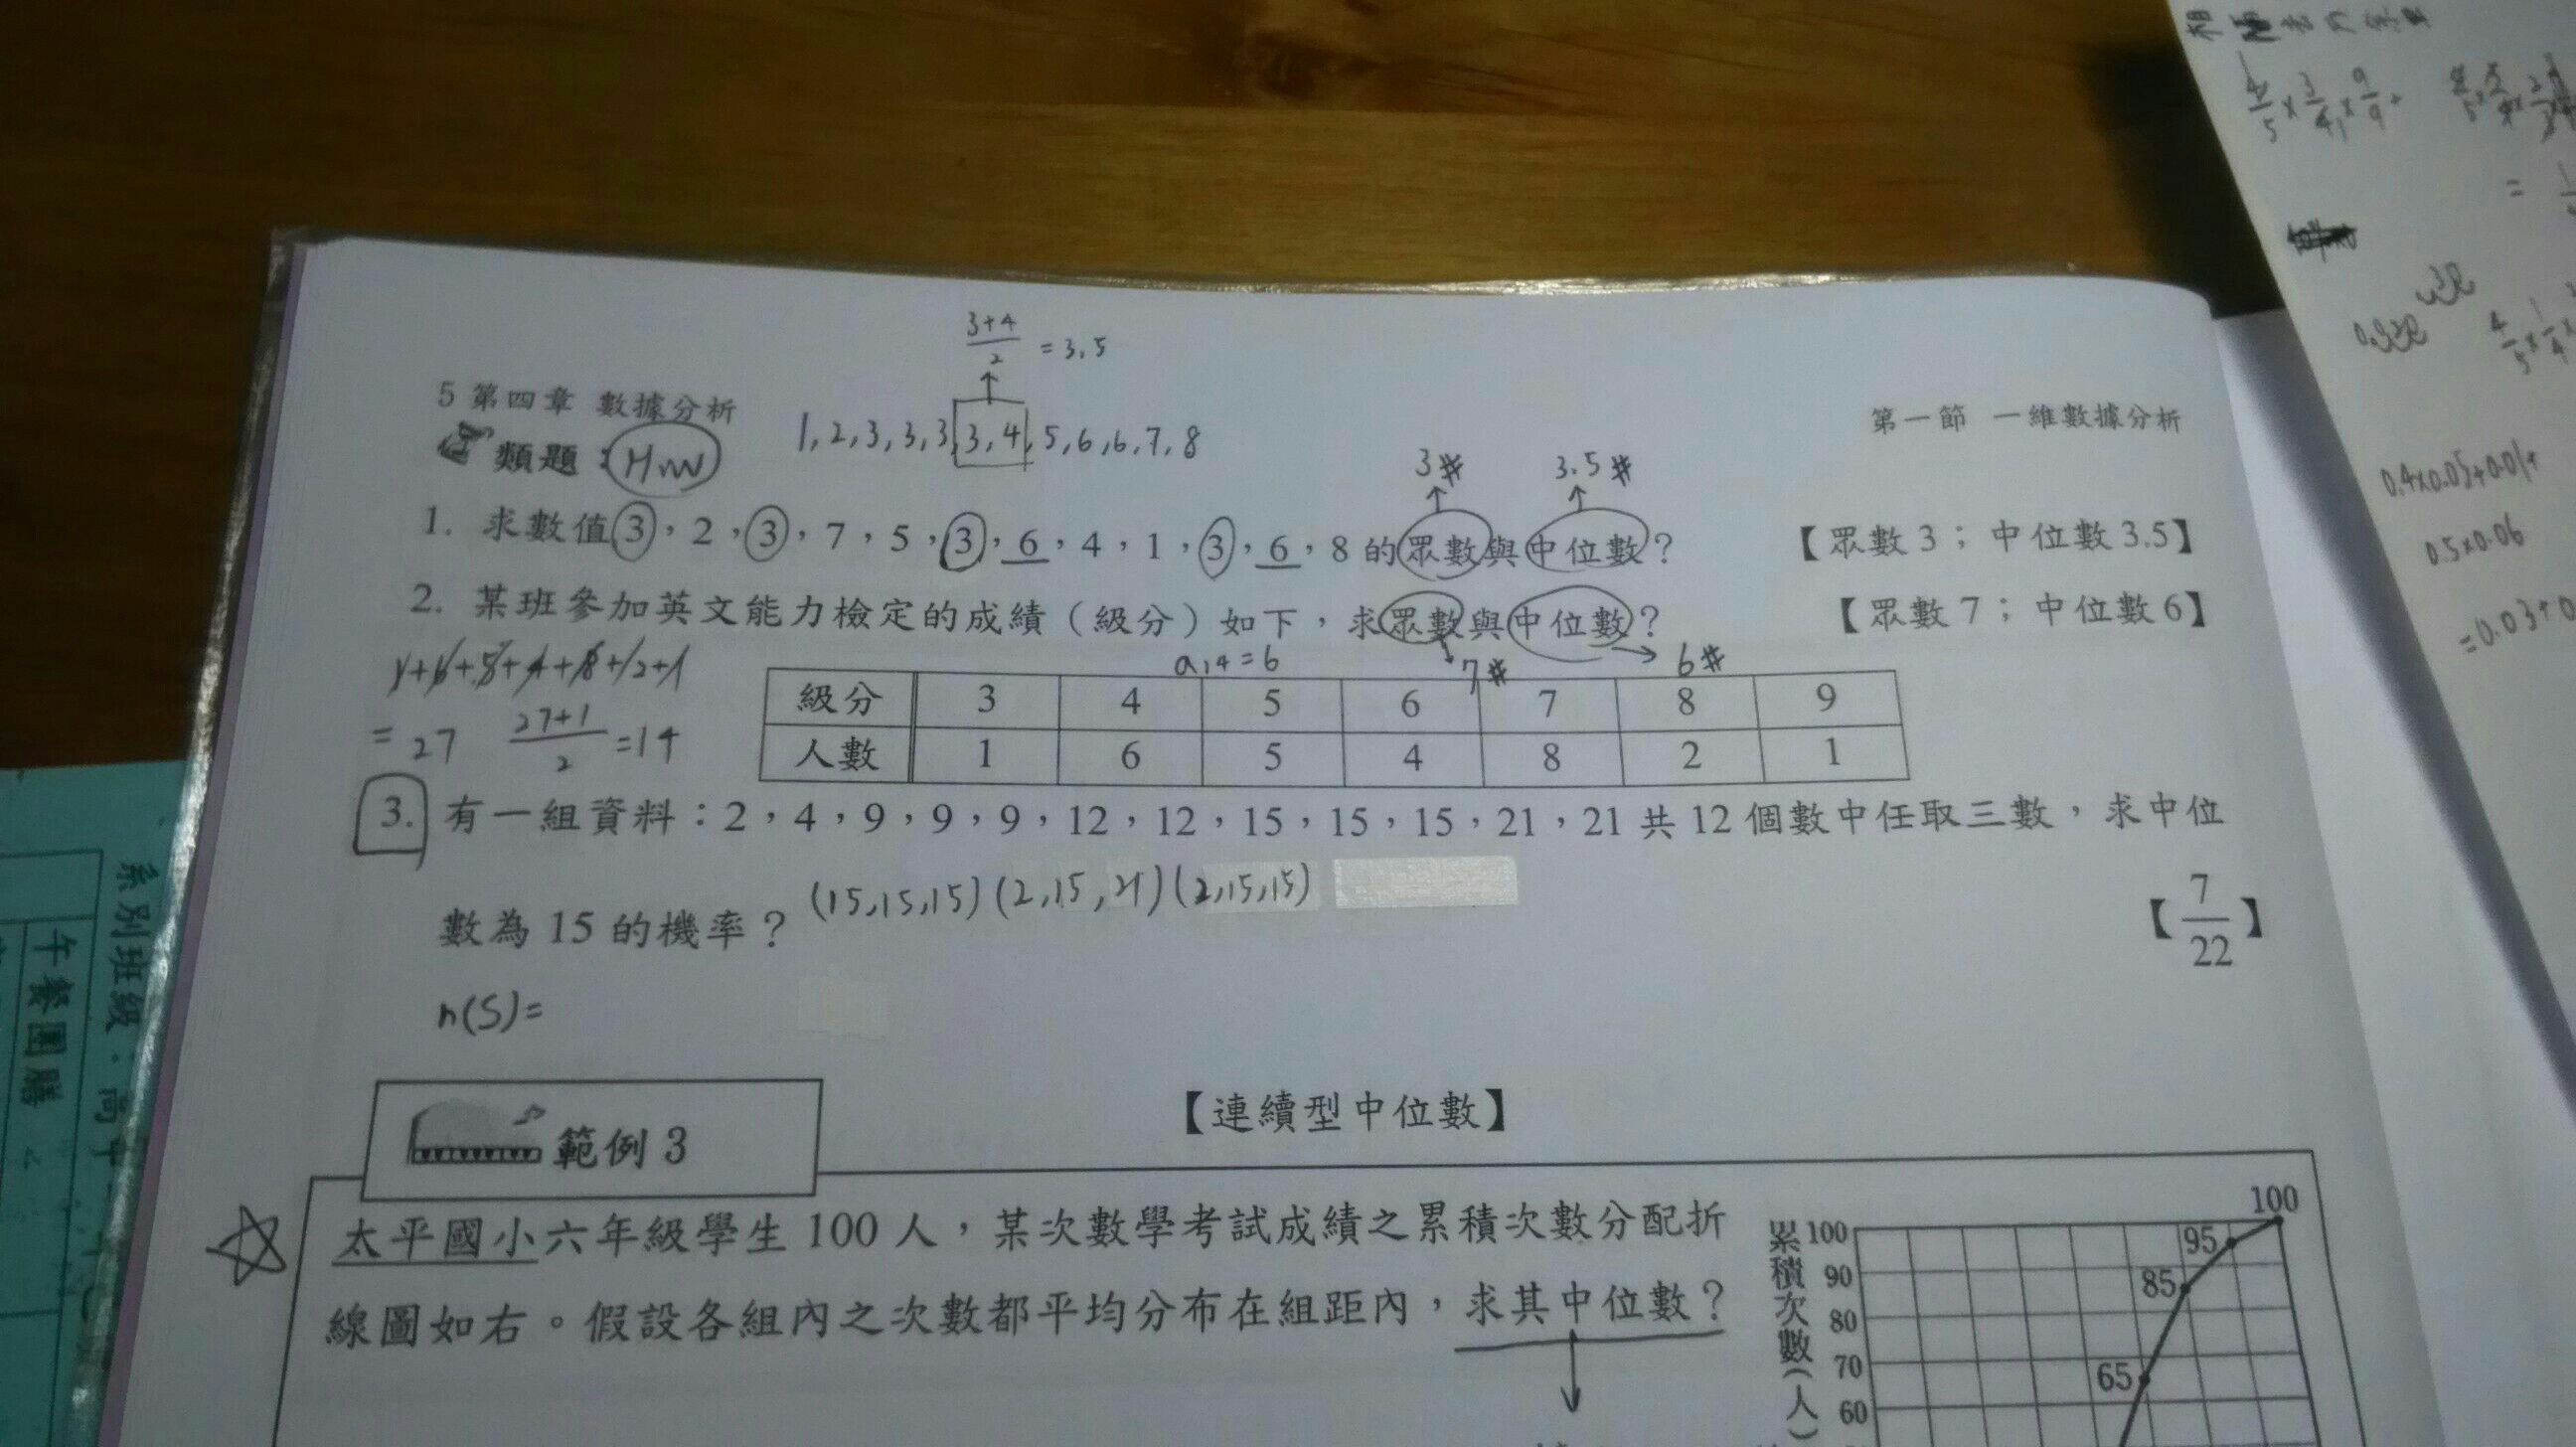 3+4
2
=3.5
5 第四章 數據分析
第一節 一維數據分析
1,2,3,3,3,3,4,5,6,6,7,8
類題：HW
3# 3.5#
1. 求數值3，2，3，7，5，3，6，4，1，3，6，8的眾數與中位數？【眾數3；中位數3.5】
2. 某班參加英文能力檢定的成績（級分）如下，求眾數與中位數？【眾數7；中位數6】
1+6+5+4+8+2+1
a14=6
7# 6#
級分 3 4 5 6 7 8 9
=27 27+1
2
=14
人數 1 6 5 4 8 2 1
3. 有一組資料：2，4，9，9，9，12，12，15，15，15，21，21共12個數中任取三數，求中位
數為15的機率？ (15,15,15)(2,15,21)(2,15,15)
【7
22】
n(S)=
【連續型中位數】
範例3
太平國小六年級學生100人，某次數學考試成績之累積次數分配折
線圖如右。假設各組內之次數都平均分布在組距內，求其中位數？
累積次數(人)
100
90
80
70
60
100
95
85
65
系別班級：高中
午餐團膳
0.4×0.05+0.01+
0.5×0.06
=0.03+0